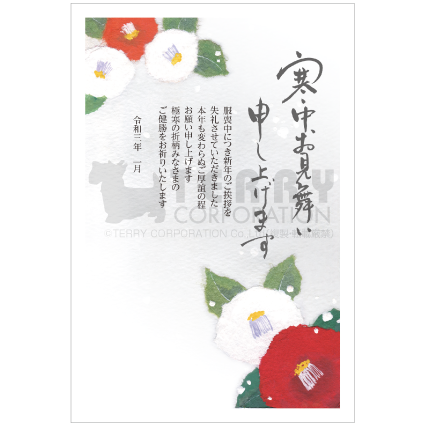 寒中お見舞い
申し上げます
服喪中につき新年のご挨拶を
失礼させていただきました
本年も変わらぬご厚誼の程
お願い申し上げます
極寒の折柄みなさまの
ご健勝をお祈りいたします
令和三年 一月
TERRY
CORPORATION
© TERRY CORPORATION Co.,Ltd.